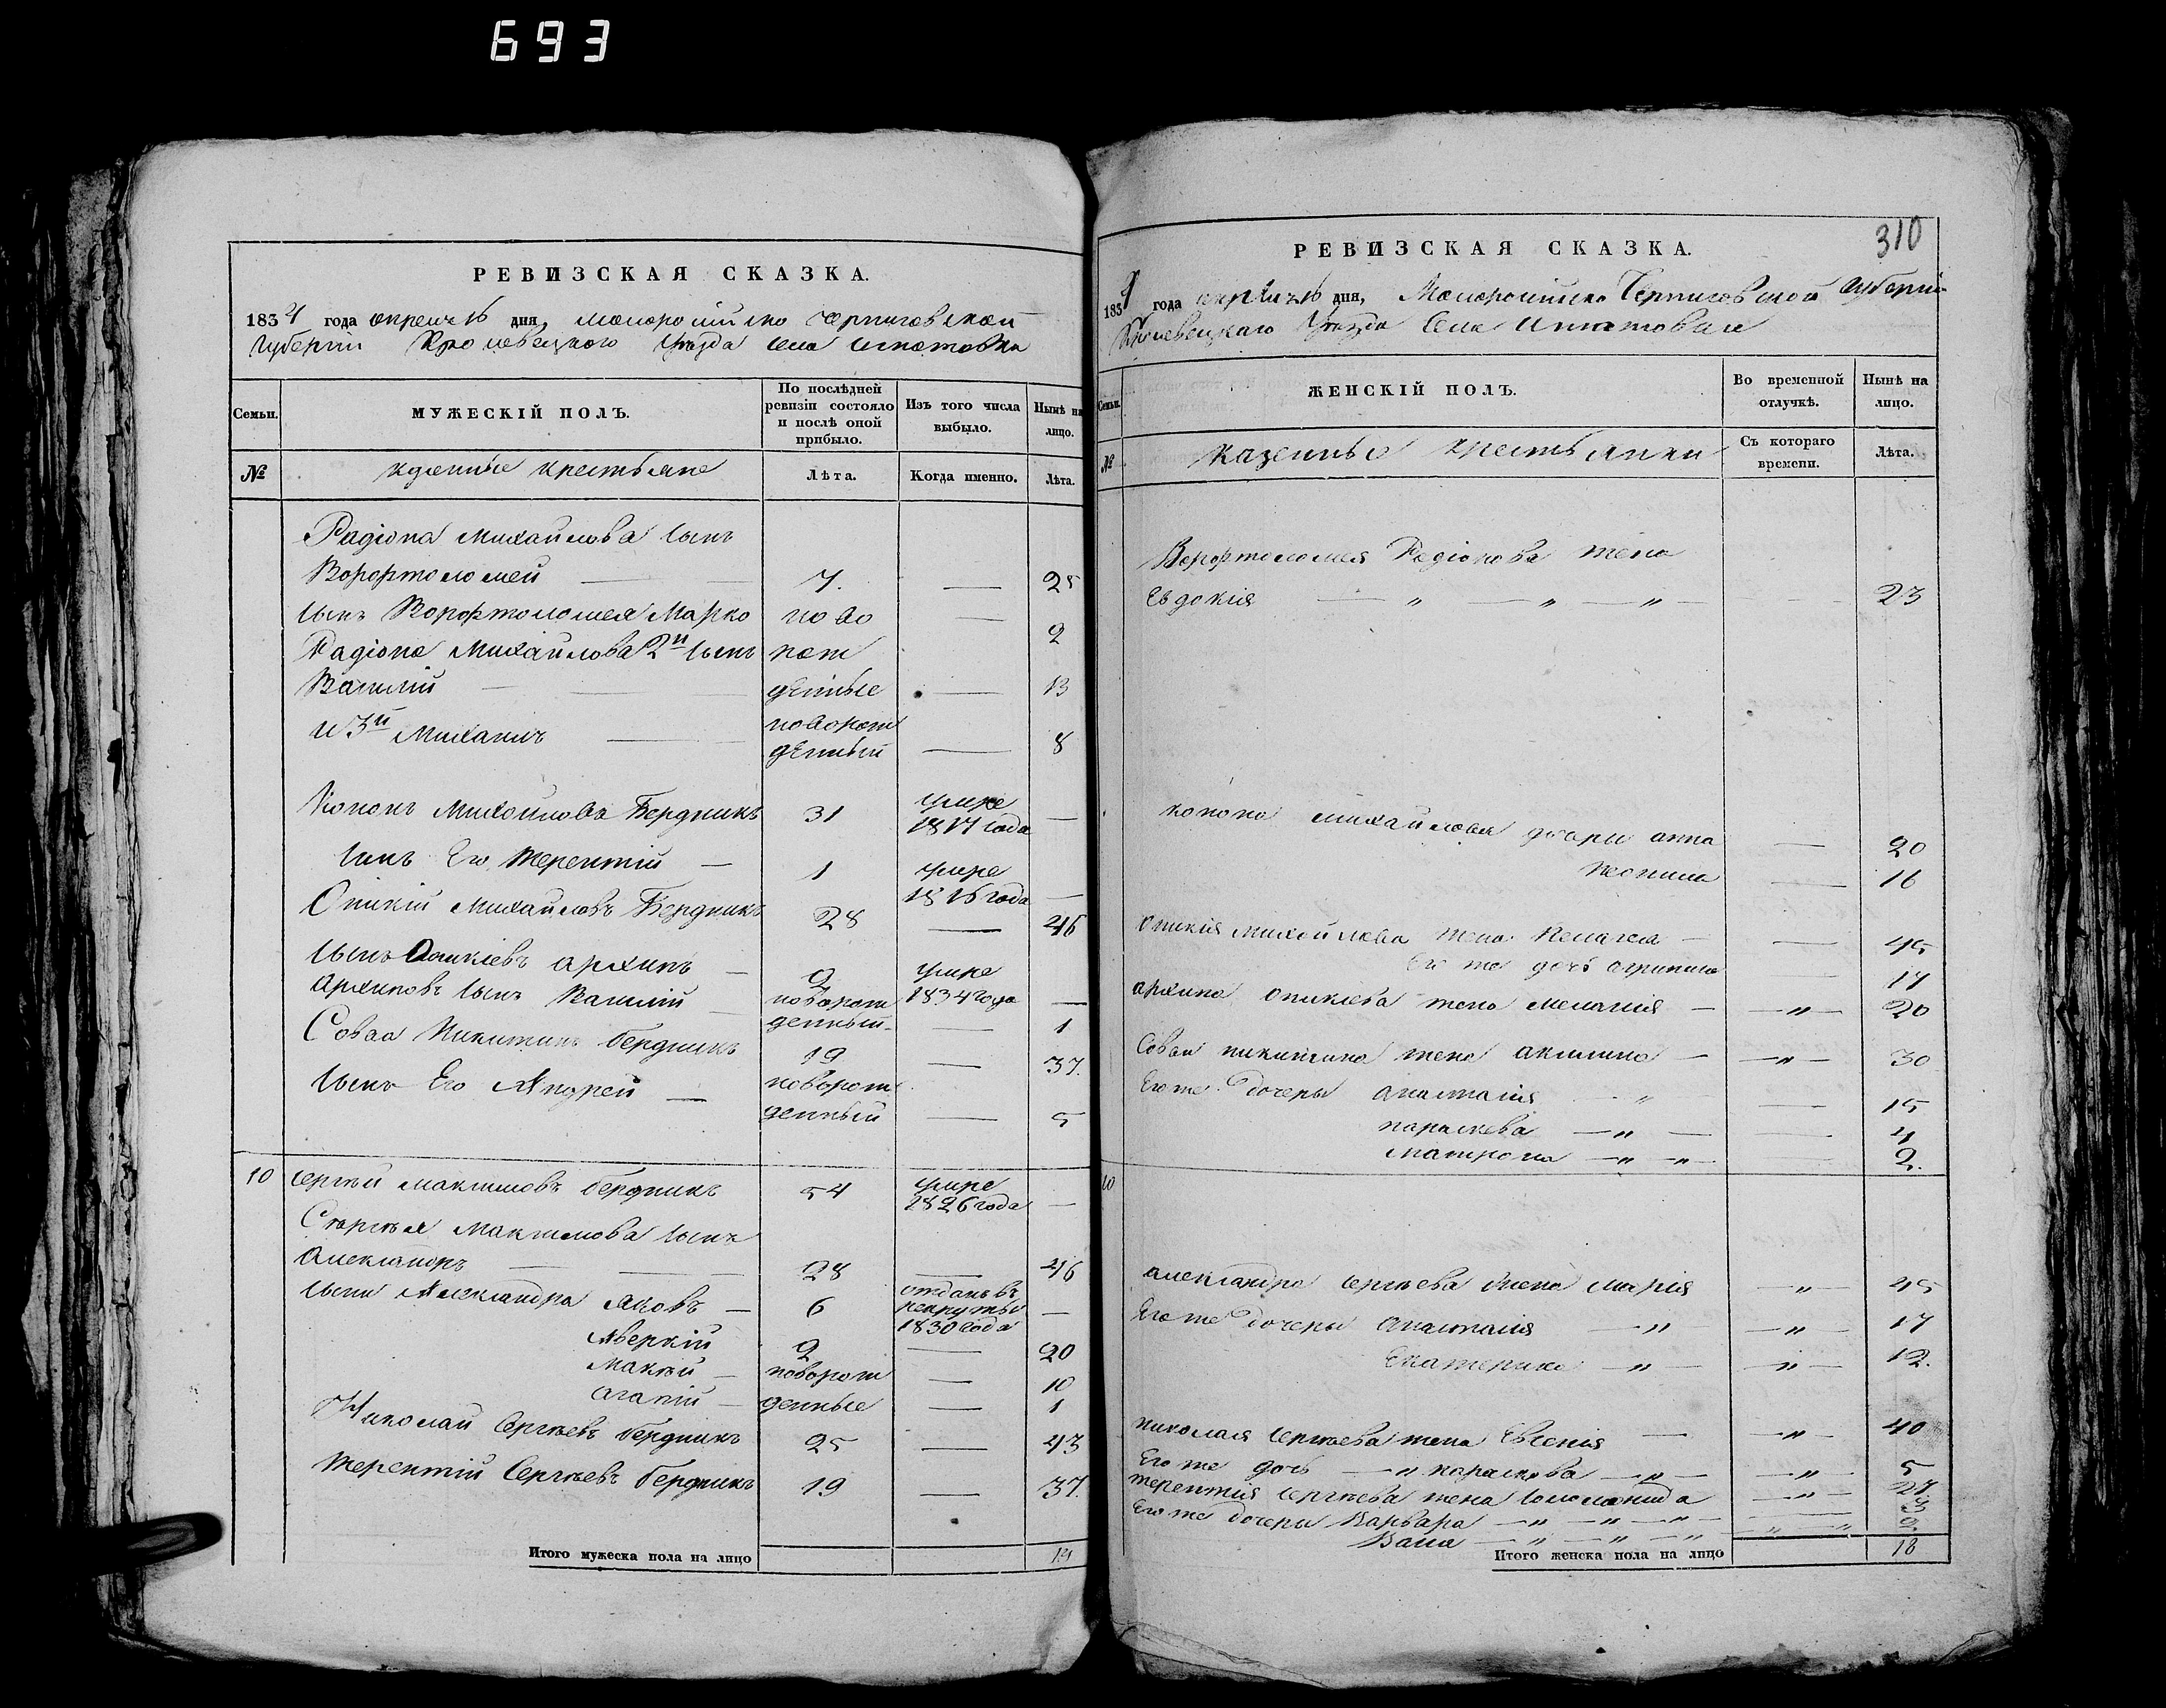 693
РЕВИЗСКАЯ СКАЗКА.
1834 года апреля 16 дня, Малоросійско Черниговской
Губерніи Кролевецкого Уезда села Игнатовка
Семьи.
МУЖЕСКІЙ ПОЛЪ.
По послѣдней ревизіи состояло и послѣ оной прибыло.
Изъ того числа выбыло.
Нынѣ на лицо.
№
казенные крестьяне
Лѣта.
Когда именно.
Лѣта.
Радіона Михайлова сынъ
Ворфтоломей 7. — 25
сынъ Ворфтоломея Марко ново — 2
Радіона Михайлова 2й сынъ рож
Василій денные — 13
и 3й Михаилъ новорож денный — 8
Кононъ Михайловъ Бердникъ 31 умре 1817 года —
сынъ Его Терентій — 1 умре 1816 года —
Оникій Михайловъ Бердникъ 28 — 46
сынъ Оникіевъ Архипъ — 2 умре 1834 года —
Архиповъ сынъ Василій — новорож денный — 1
Савва Никитинъ Бердникъ 19 — 37.
сынъ Его Андрей — новорож денный — 5
10 Сергѣй Максимовъ Бердникъ 54 умре 1826 года —
Сергѣя Максимова сынъ
Александръ — 28 — 46
сыны Александра Яковъ — 6 отданъ въ рекруты 1830 года —
Аверкій 2 — 20
Макѣй — новорож — 10
Агапій — денные — 1
Николай Сергѣевъ Бердникъ 25 — 43
Терентій Сергѣевъ Бердникъ 19 — 37.
Итого мужеска пола на лицо
310
РЕВИЗСКАЯ СКАЗКА.
1834 года апрѣля 16 дня, Малоросійско Черниговской Губерніи
Кролевецкаго Уѣзда Села
Семьи.
ЖЕНСКІЙ ПОЛЪ.
Во временной отлучкѣ.
Нынѣ на лицо.
№
казенные крестьянки
Съ котораго времени.
Лѣта.
Ворфтоломея Радіонова жена
Евдокия — " — " — " — 23
Конона Михайлова дочери Анна — 20
— 16
Оникія Михайлова жена Пелагея — 45
Его же дочь — 17
Архипа Оникіева жена Меланія — " — 20
Саввы Никитина жена Акилина — " — 30
Его же дочери Анастасія " — 15
Параскева — " — 4
Матрона — " — " — 2.
10
Александра Сергѣева жена Марія — " — 45
Его же дочери Анастасія — " — " — 17
Екатерина — " — " — 12.
Николая Сергѣева жена Евгенія — " — 40
Его же дочь — " Параскева — " — " — 5
Терентія Сергѣева жена — " — 27
Его же дочери Варвара — " — " — " — 3
— " — " — " 2.
Итого женска пола на лицо 18